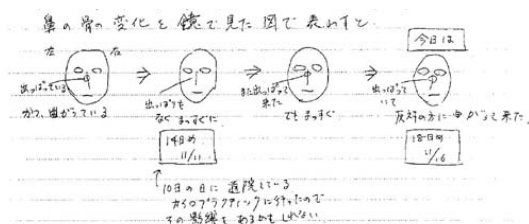 鼻の骨の変化を鏡で見た図で表わすと
左 右
今日は
出っぱっている
かつ、曲がっている
⇒
出っぱりも
なくまっすぐに
⇒
また出っぱって
来た
でもまっすぐ
⇒
出っぱって
いて
反対の方に曲がって来た。
14日め
11/11
18日め
11/16
↑
10日の日に通院している
カイロプラクティックに行ったので
その影響もあるかもしれない